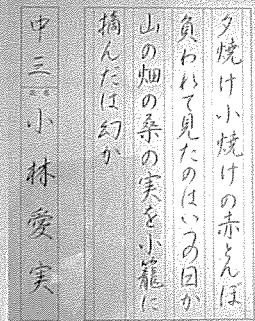 夕焼け小焼けの赤とんぼ
負われて見たのはいつの日か
山の畑の桑の実を小籠に
摘んだは幻か
中三 小林愛実